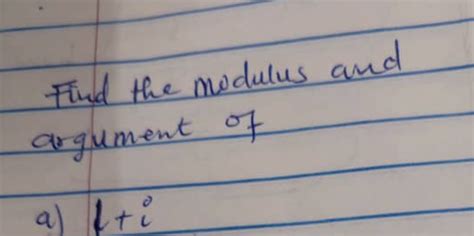 Find the modulus and
argument of
a) 1+i